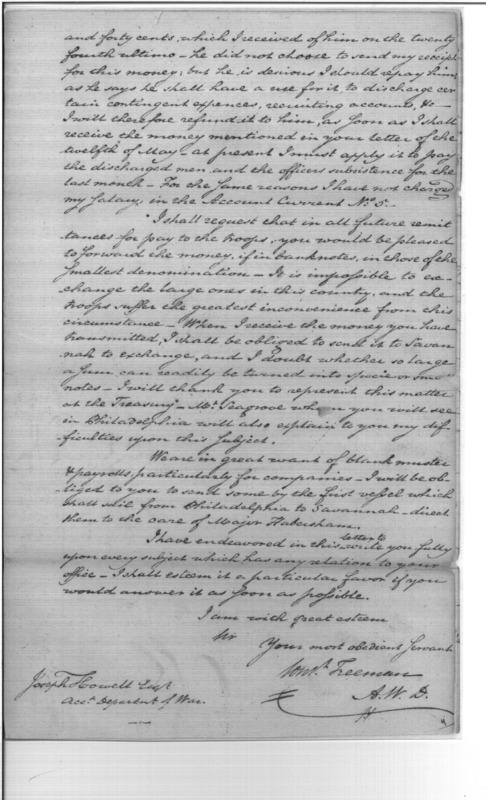 and forty cents, which I received of him on the twenty
fourth ultimo – he did not choose to send my receipt
for this money; but he is desirous I should repay him
as he says he shall have a use for it to discharge cer-
tain contingent expences, recruiting accounts, &c –
I will therefore refund it to him, as soon as I shall
receive the money mentioned in your letter of the
twelfth of May – at present I must apply it to pay
the discharged men, and the officers subsistence for the
last month – For the same reasons I have not charged
my Salary, in the Account Current No. 5 –
I shall request that in all future remit-
tances for pay to the troops, you would be pleased
to forward the money, if in banknotes, in those of the
smallest denomination – It is impossible to ex-
change the large ones in this country, and the
troops suffer the greatest inconvenience from this
circumstance – When I receive the money you have
transmitted, I shall be obliged to send it to Savan-
nah to exchange, and I doubt whether so large
a sum can readily be turned into specie or small
notes – I will thank you to represent this matter
at the Treasury – Mr. Seagrove whom you will see
in Philadelphia will also explain to you my dif-
ficulties upon this subject.
We are in great want of blank muster
& payrolls, particularly for companies – I will be ob-
liged to you to send some by the first vessel which
shall sail from Philadelphia to Savannah – direct
them to the care of Major Habersham.
I have endeavored in this letter to write you fully
upon every subject which has any relation to your
office – I shall esteem it a particular favor if you
would answer it as soon as possible.
I am with great esteem
Sir
Your most obedient Servant
Const. Freeman
A. W. D.
Joseph Howell Esqr
Acct. Department of War.